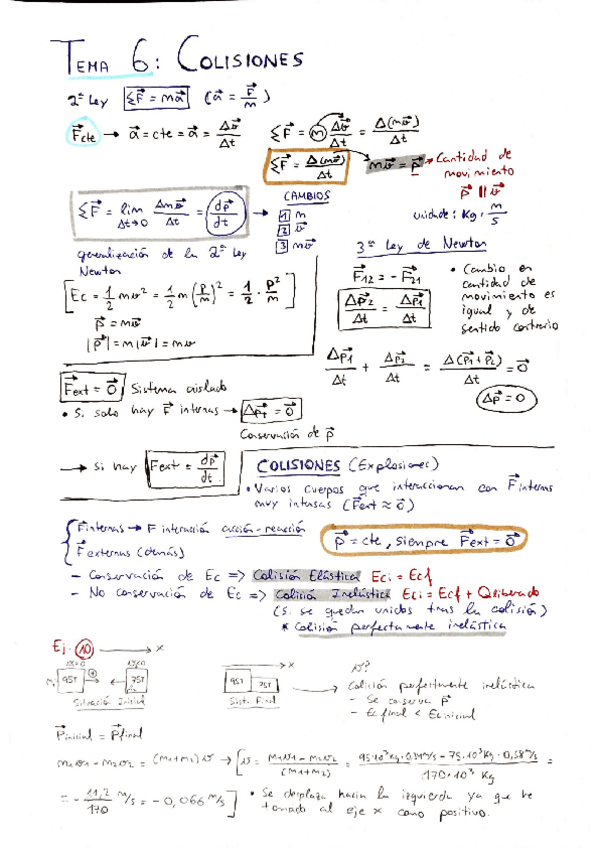 TEMA 6: COLISIONES
2ª Ley ΣF⃗ = ma⃗ (a⃗ = F⃗/m)
F⃗cte → a⃗ = cte = a⃗ = Δv⃗/Δt ΣF⃗ = m Δv⃗/Δt = Δ(mv⃗)/Δt
ΣF⃗ = Δ(mv⃗)/Δt mv⃗ = p⃗ → Cantidad de
movimiento
p⃗ ∥ v⃗
unidade: kg · m/s
ΣF⃗ = lim Δt→0 Δmv⃗/Δt = dp⃗/dt → CAMBIOS
1 m
2 v⃗
3 mv⃗
generalización de la 2ª Ley
Newton
[Ec = 1/2 mv² = 1/2 m(p/m)² = 1/2 · p²/m]
p⃗ = mv⃗
|p⃗| = m|v⃗| = mv
3ª Ley de Newton
F⃗12 = -F⃗21
Δp⃗2/Δt = Δp⃗1/Δt
• Cambio en
cantidad de
movimiento es
igual y de
sentido contrario
Δp⃗1/Δt + Δp⃗2/Δt = Δ(p⃗1+p⃗2)/Δt = 0⃗
Δp⃗ = 0
F⃗ext = 0⃗ Sistema aislado
• Si solo hay F⃗ internas → Δp⃗t = 0⃗
Conservación de p⃗
→ Si hay F⃗ext = dp⃗/dt
COLISIONES (Explosiones)
• Varios cuerpos que interaccionan con F⃗ internas
muy intensas (F⃗ext ≈ 0⃗)
{ F⃗internas → F interacción acción-reacción
F⃗ externas (demás)
p⃗ = cte, siempre F⃗ext = 0⃗
- Conservación de Ec => Colisión Elástica Eci = Ecf
- No conservación de Ec => Colisión Inelástica Eci = Ecf + Qliberado
(si se quedan unidos tras la colisión)
* Colisión perfectamente inelástica
Ej. 10 → x
95T 75T
Situación Inicial
→ x
95T 75T
Sist. Final
→ v?
Colisión perfectamente inelástica
- Se conserva p⃗
- Ec final < Ec inicial
P⃗inicial = P⃗final
m1v1 - m2v2 = (m1+m2) v → [v = m1v1 - m2v2/(m1+m2) = 95·10³kg· m/s - 75·10³kg · 0,58 m/s / 170·10³ kg =
= - 11,2/170 m/s = -0,066 m/s] • Se desplaza hacia la izquierda ya que he
tomado al eje x como positivo.